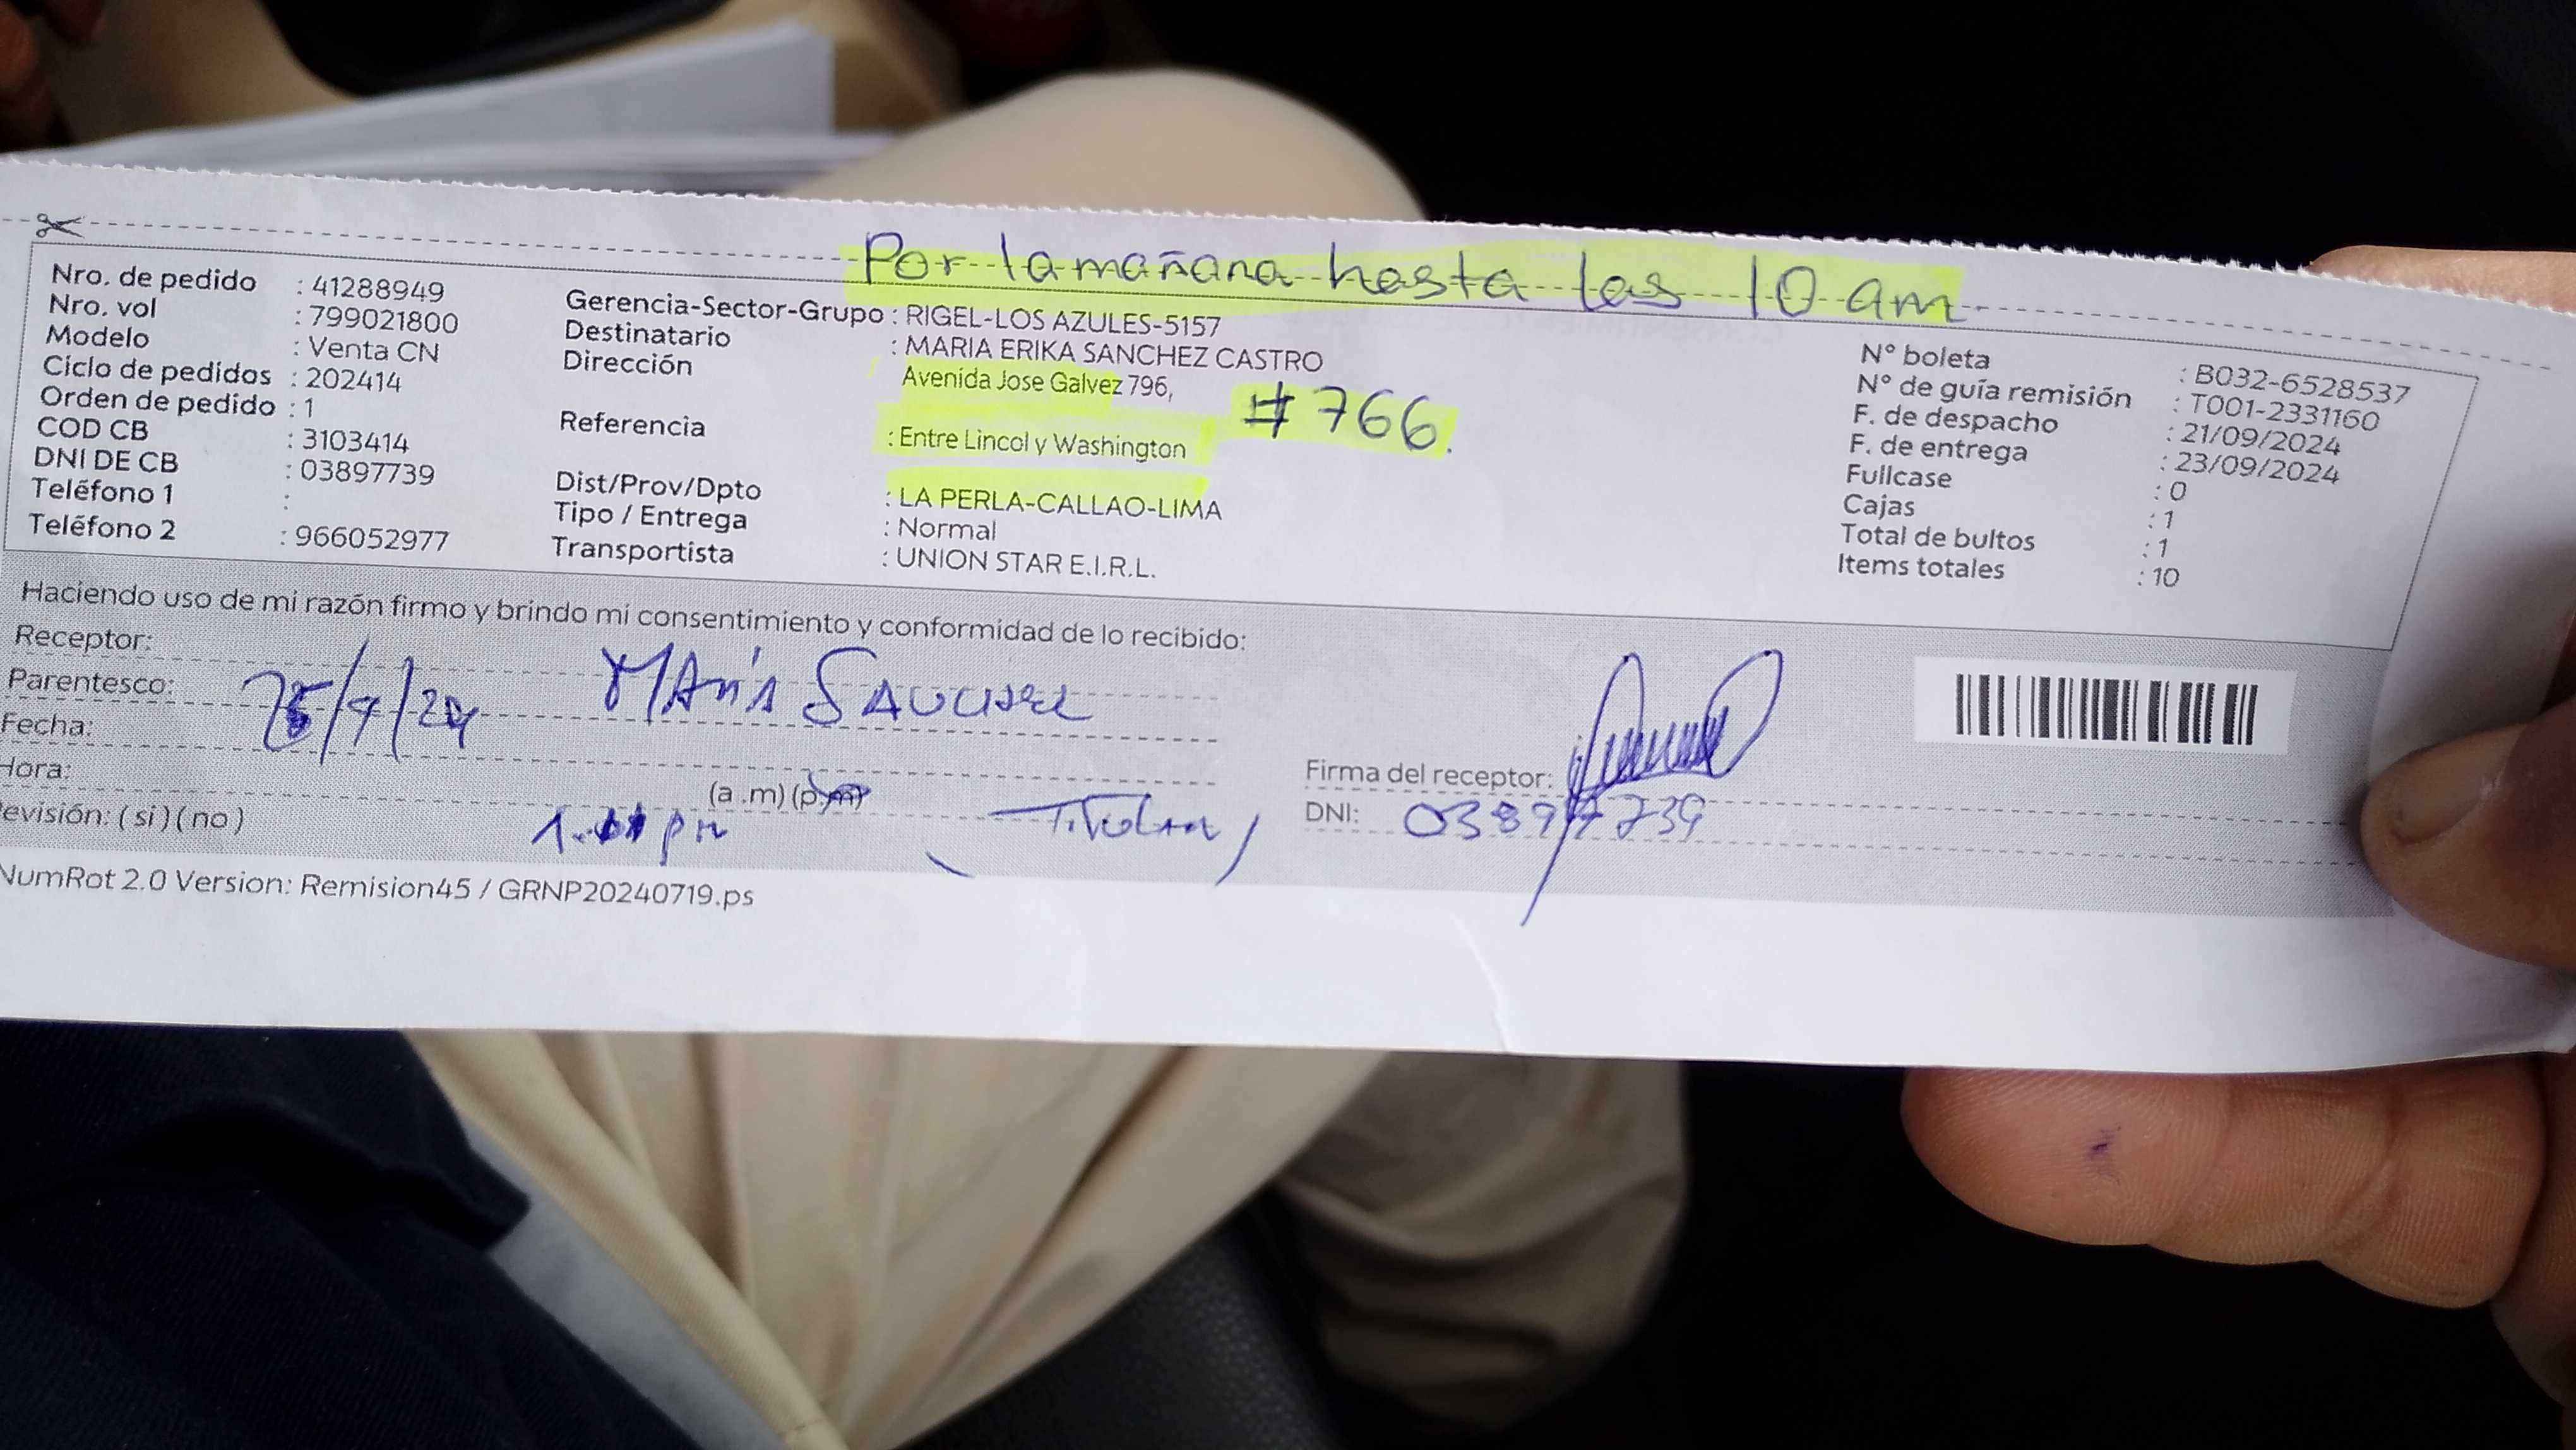 Por la mañana hasta las 10 am
Nro. de pedido : 41288949
Nro. vol : 799021800
Modelo : Venta CN
Ciclo de pedidos : 202414
Orden de pedido : 1
COD CB : 3103414
DNI DE CB : 03897739
Teléfono 1 :
Teléfono 2 : 966052977
Gerencia-Sector-Grupo : RIGEL-LOS AZULES-5157
Destinatario : MARIA ERIKA SANCHEZ CASTRO
Dirección Avenida Jose Galvez 796, # 766.
Referencia : Entre Lincol y Washington
Dist/Prov/Dpto : LA PERLA-CALLAO-LIMA
Tipo / Entrega : Normal
Transportista : UNION STAR E.I.R.L.
N° boleta : B032-6528537
N° de guía remisión : T001-2331160
F. de despacho : 21/09/2024
F. de entrega : 23/09/2024
Fullcase : 0
Cajas : 1
Total de bultos : 1
Items totales : 10
Haciendo uso de mi razón firmo y brindo mi consentimiento y conformidad de lo recibido:
Receptor:
Parentesco: María Sanchez
Fecha:
Hora: (a .m) (p.m)
evisión: ( si ) ( no ) pm (Titular)
Firma del receptor:
DNI: 03897739
NumRot 2.0 Version: Remision45 / GRNP20240719.ps